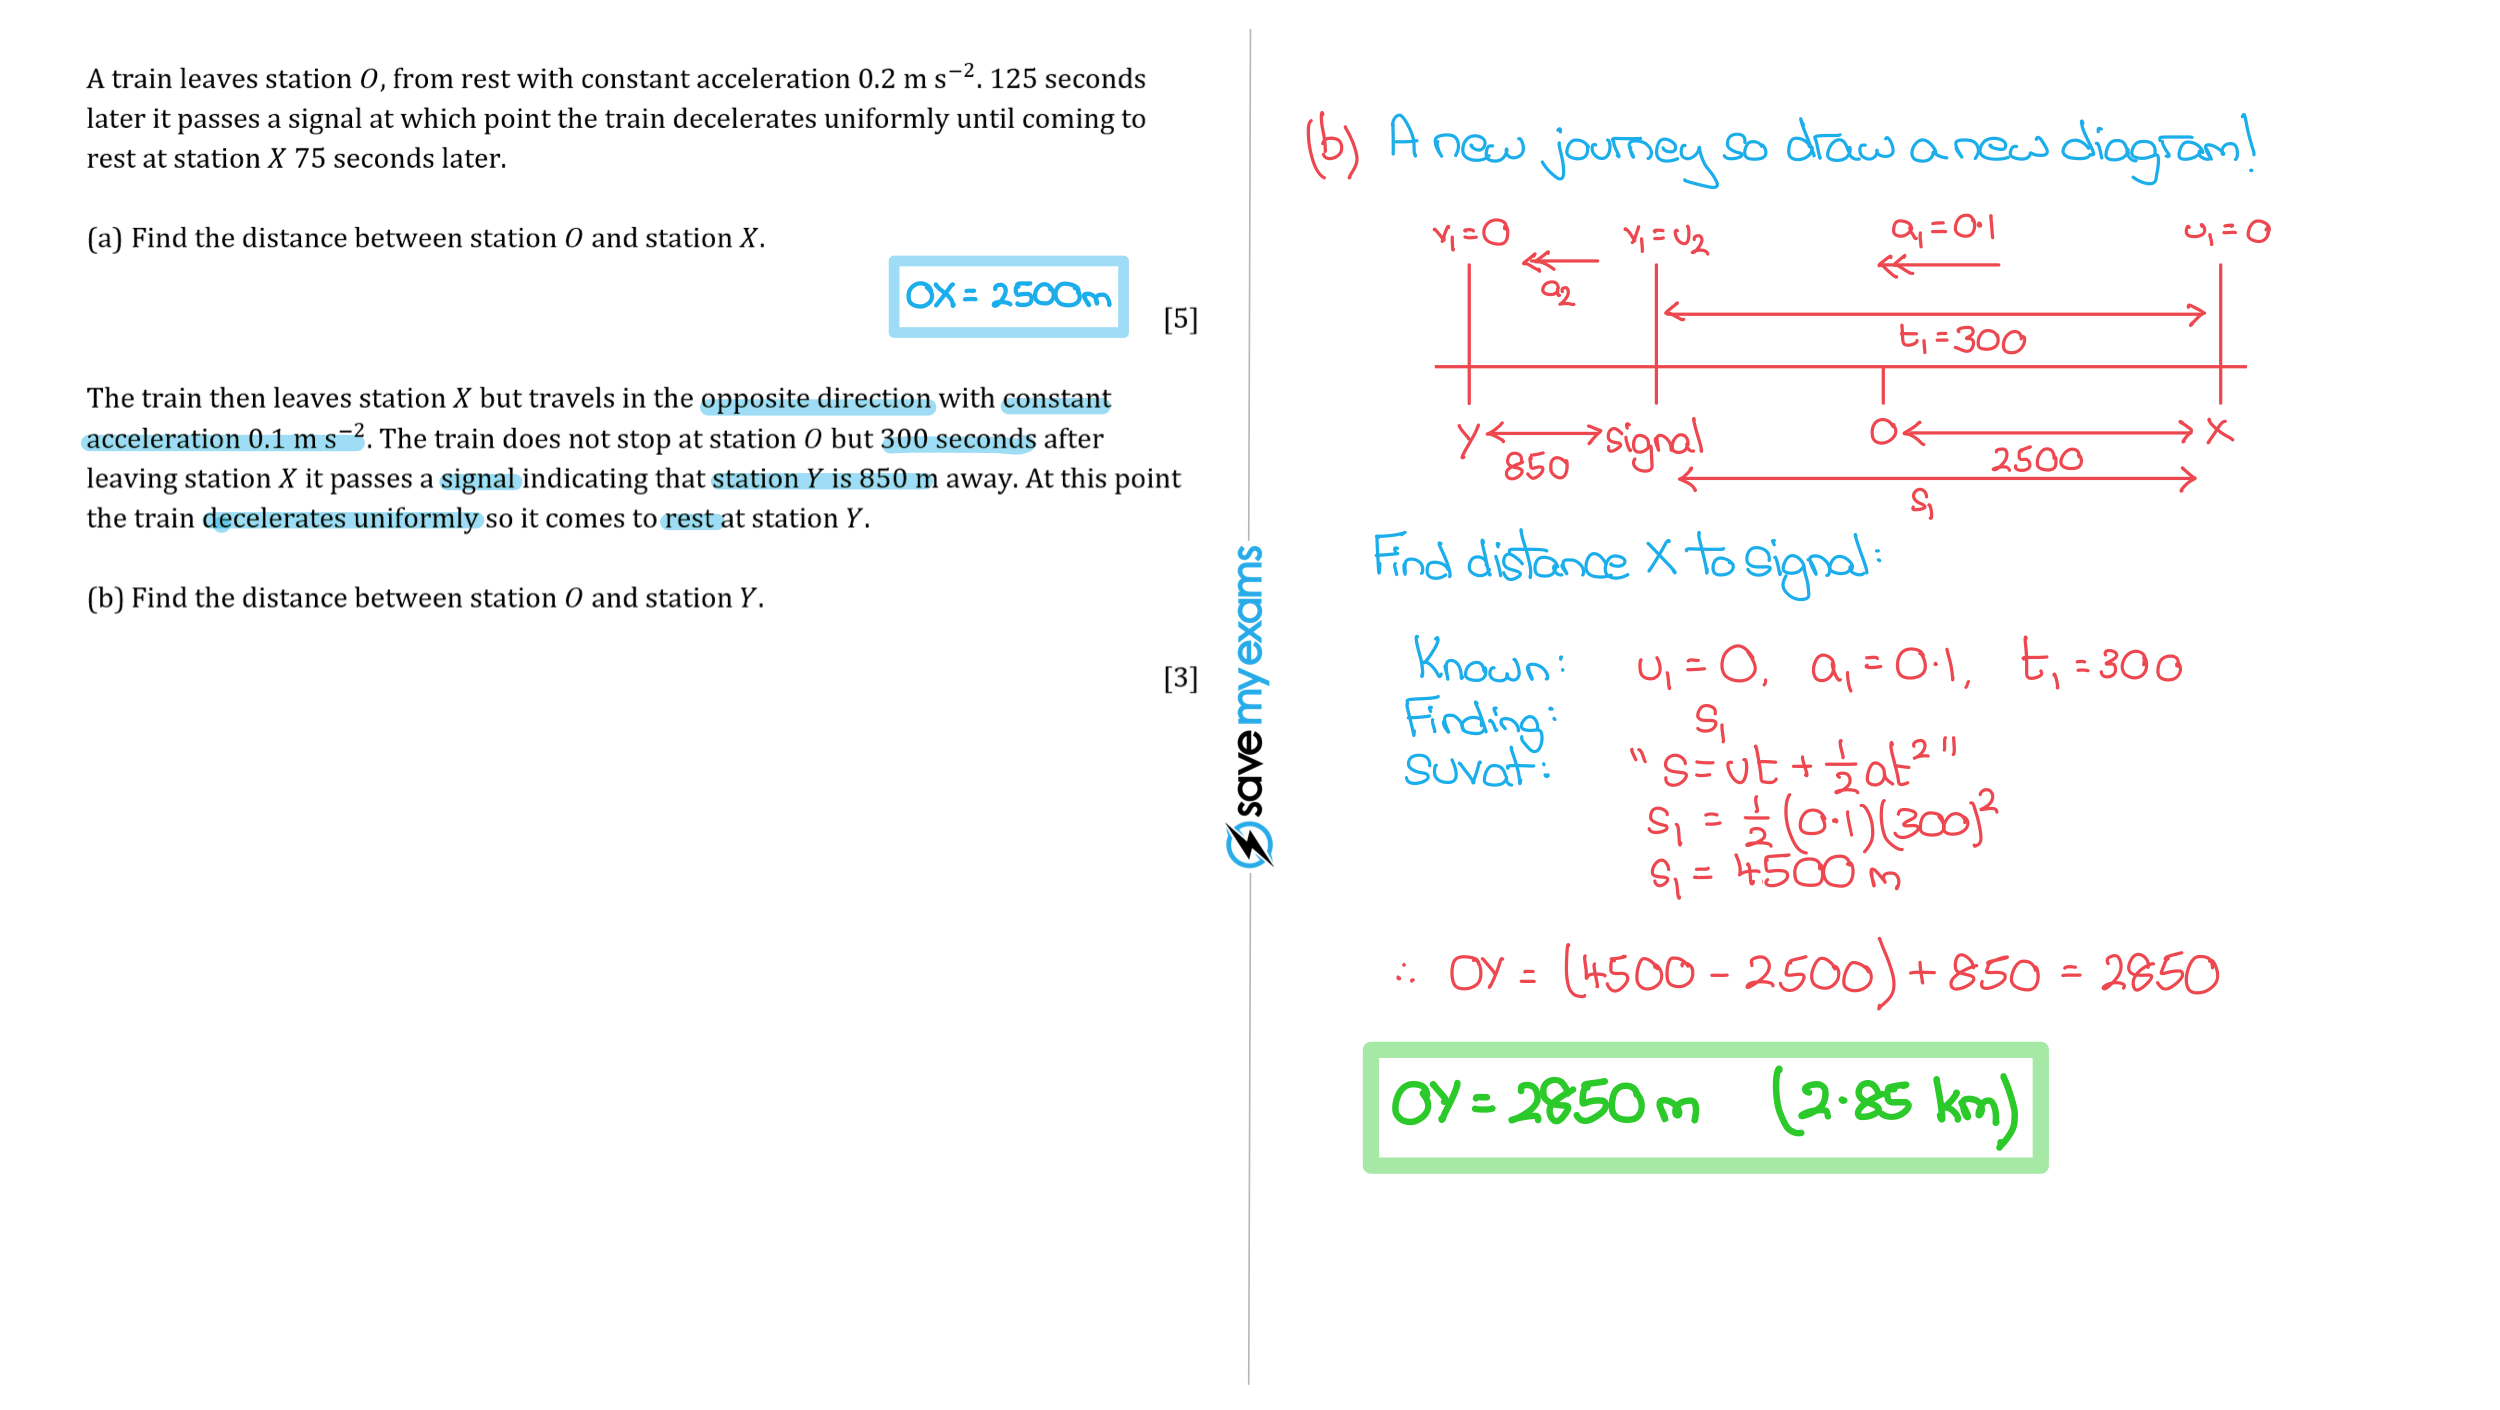 A train leaves station O, from rest with constant acceleration 0.2 m s⁻². 125 seconds
later it passes a signal at which point the train decelerates uniformly until coming to
rest at station X 75 seconds later.
(a) Find the distance between station O and station X.
OX = 2500m
[5]
The train then leaves station X but travels in the opposite direction with constant
acceleration 0.1 m s⁻². The train does not stop at station O but 300 seconds after
leaving station X it passes a signal indicating that station Y is 850 m away. At this point
the train decelerates uniformly so it comes to rest at station Y.
(b) Find the distance between station O and station Y.
[3]
save my exams
(b) A new journey so draw a new diagram!
v₁=0 v₁=u₂ a₁=0.1 u₁=0
a₂
t₁=300
Y signal O X
850 2500
s₁
Find distance X to signal:
Known: u₁=0, a₁=0.1, t₁=300
Finding: s₁
suvat: "s=ut+½at²"
s₁ = ½(0.1)(300)²
s₁ = 4500 m
∴ OY = (4500 − 2500) + 850 = 2850
OY = 2850 m (2.85 km)